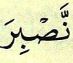 نَّصْبِرَ